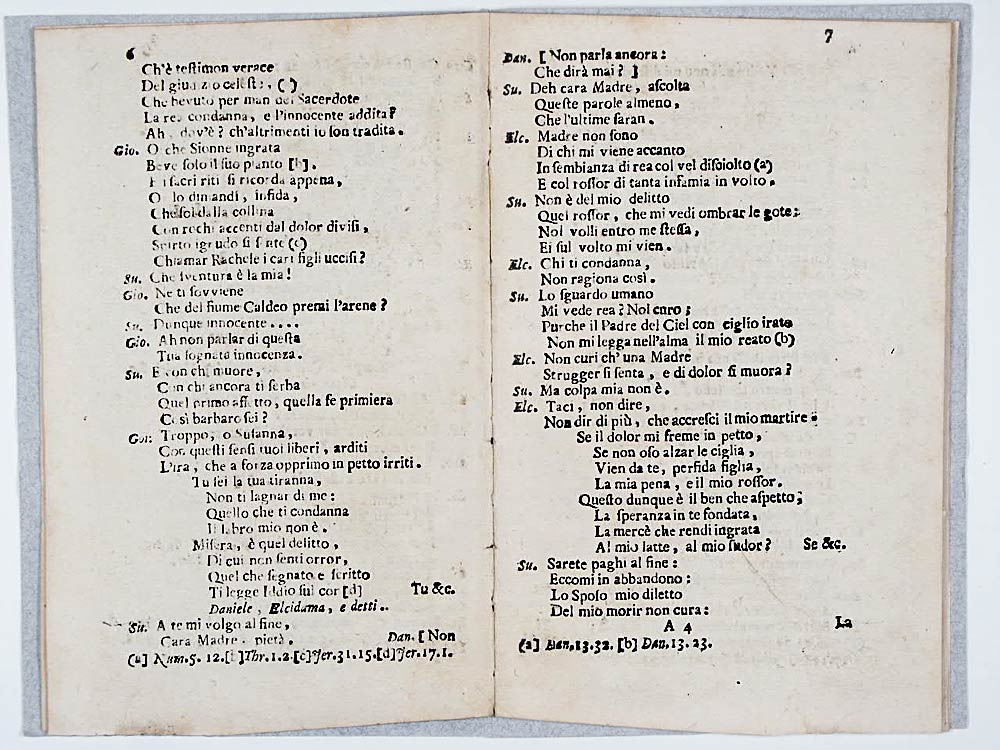 6
Ch'è testimon verace
Del giudizio celeste, (a)
Che bevuto per man del Sacerdote
La rea condanna, e l'innocente addita?
Ah, dov'è? ch'altrimenti io son tradita.
Gio. O che Sionne ingrata
Beve solo il suo pianto [b].
E i sacri riti si ricorda appena,
O lo dimandi, infida,
Che sol dalla collina
Con rochi accenti dal dolor divisi,
Spirto ignudo si sente (c)
Chiamar Rachele i cari figli uccisi?
Su. Che sventura è la mia!
Gio. Ne ti sovviene
Che del fiume Caldeo premi l'arene?
Su. Dunque innocente....
Gio. Ah non parlar di questa
Tua sognata innocenza.
Su. E con chi muore,
Con chi ancora ti serba
Quel primo affetto, quella fe primiera
Così barbaro sei?
Gio. Troppo, o Susanna,
Con questi sensi tuoi liberi, arditi
L'ira, che a forza opprimo in petto irriti.
Tu sei la tua tiranna,
Non ti lagnar di me:
Quello che ti condanna
Il labro mio non è.
Misera, è quel delitto,
Di cui non senti orror,
Quel che segnato e scritto
Ti legge Iddio sul cor [d] Tu &c.
Daniele, Elcidama, e detti..
Su. A te mi volgo al fine,
Cara Madre, pietà. Dan. [ Non
(a) Num. 5. 12. [b] Thr. 1. 2. [c] Jer. 31. 15. [d] Jer. 17. 1.
7
Dan. [ Non parla ancora:
Che dirà mai? ]
Su. Deh cara Madre, ascolta
Queste parole almeno,
Che l'ultime saran.
Elc. Madre non sono
Di chi mi viene accanto
In sembianza di rea col vel disciolto (a)
E col rossor di tanta infamia in volto.
Su. Non è del mio delitto
Quel rossor, che mi vedi ombrar le gote:
Nol volli entro me stessa,
Ei sul volto mi vien.
Elc. Chi ti condanna,
Non ragiona così.
Su. Lo sguardo umano
Mi vede rea? Nol curo;
Purche il Padre del Ciel con ciglio irato
Non mi legga nell'alma il mio reato (b)
Elc. Non curi ch'una Madre
Strugger si senta, e di dolor si muora?
Su. Ma colpa mia non è.
Elc. Taci, non dire,
Non dir di più, che accresci il mio martire.
Se il dolor mi freme in petto,
Se non oso alzar le ciglia,
Vien da te, perfida figlia,
La mia pena, e il mio rossor.
Questo dunque è il ben che aspetto;
La speranza in te fondata,
La mercè che rendi ingrata
Al mio latte, al mio sudor? Se &c.
Su. Sarete paghi al fine:
Eccomi in abbandono:
Lo Sposo mio diletto
Del mio morir non cura:
A 4 La
(a) Dan. 13. 32. [b] Dan. 13. 23.